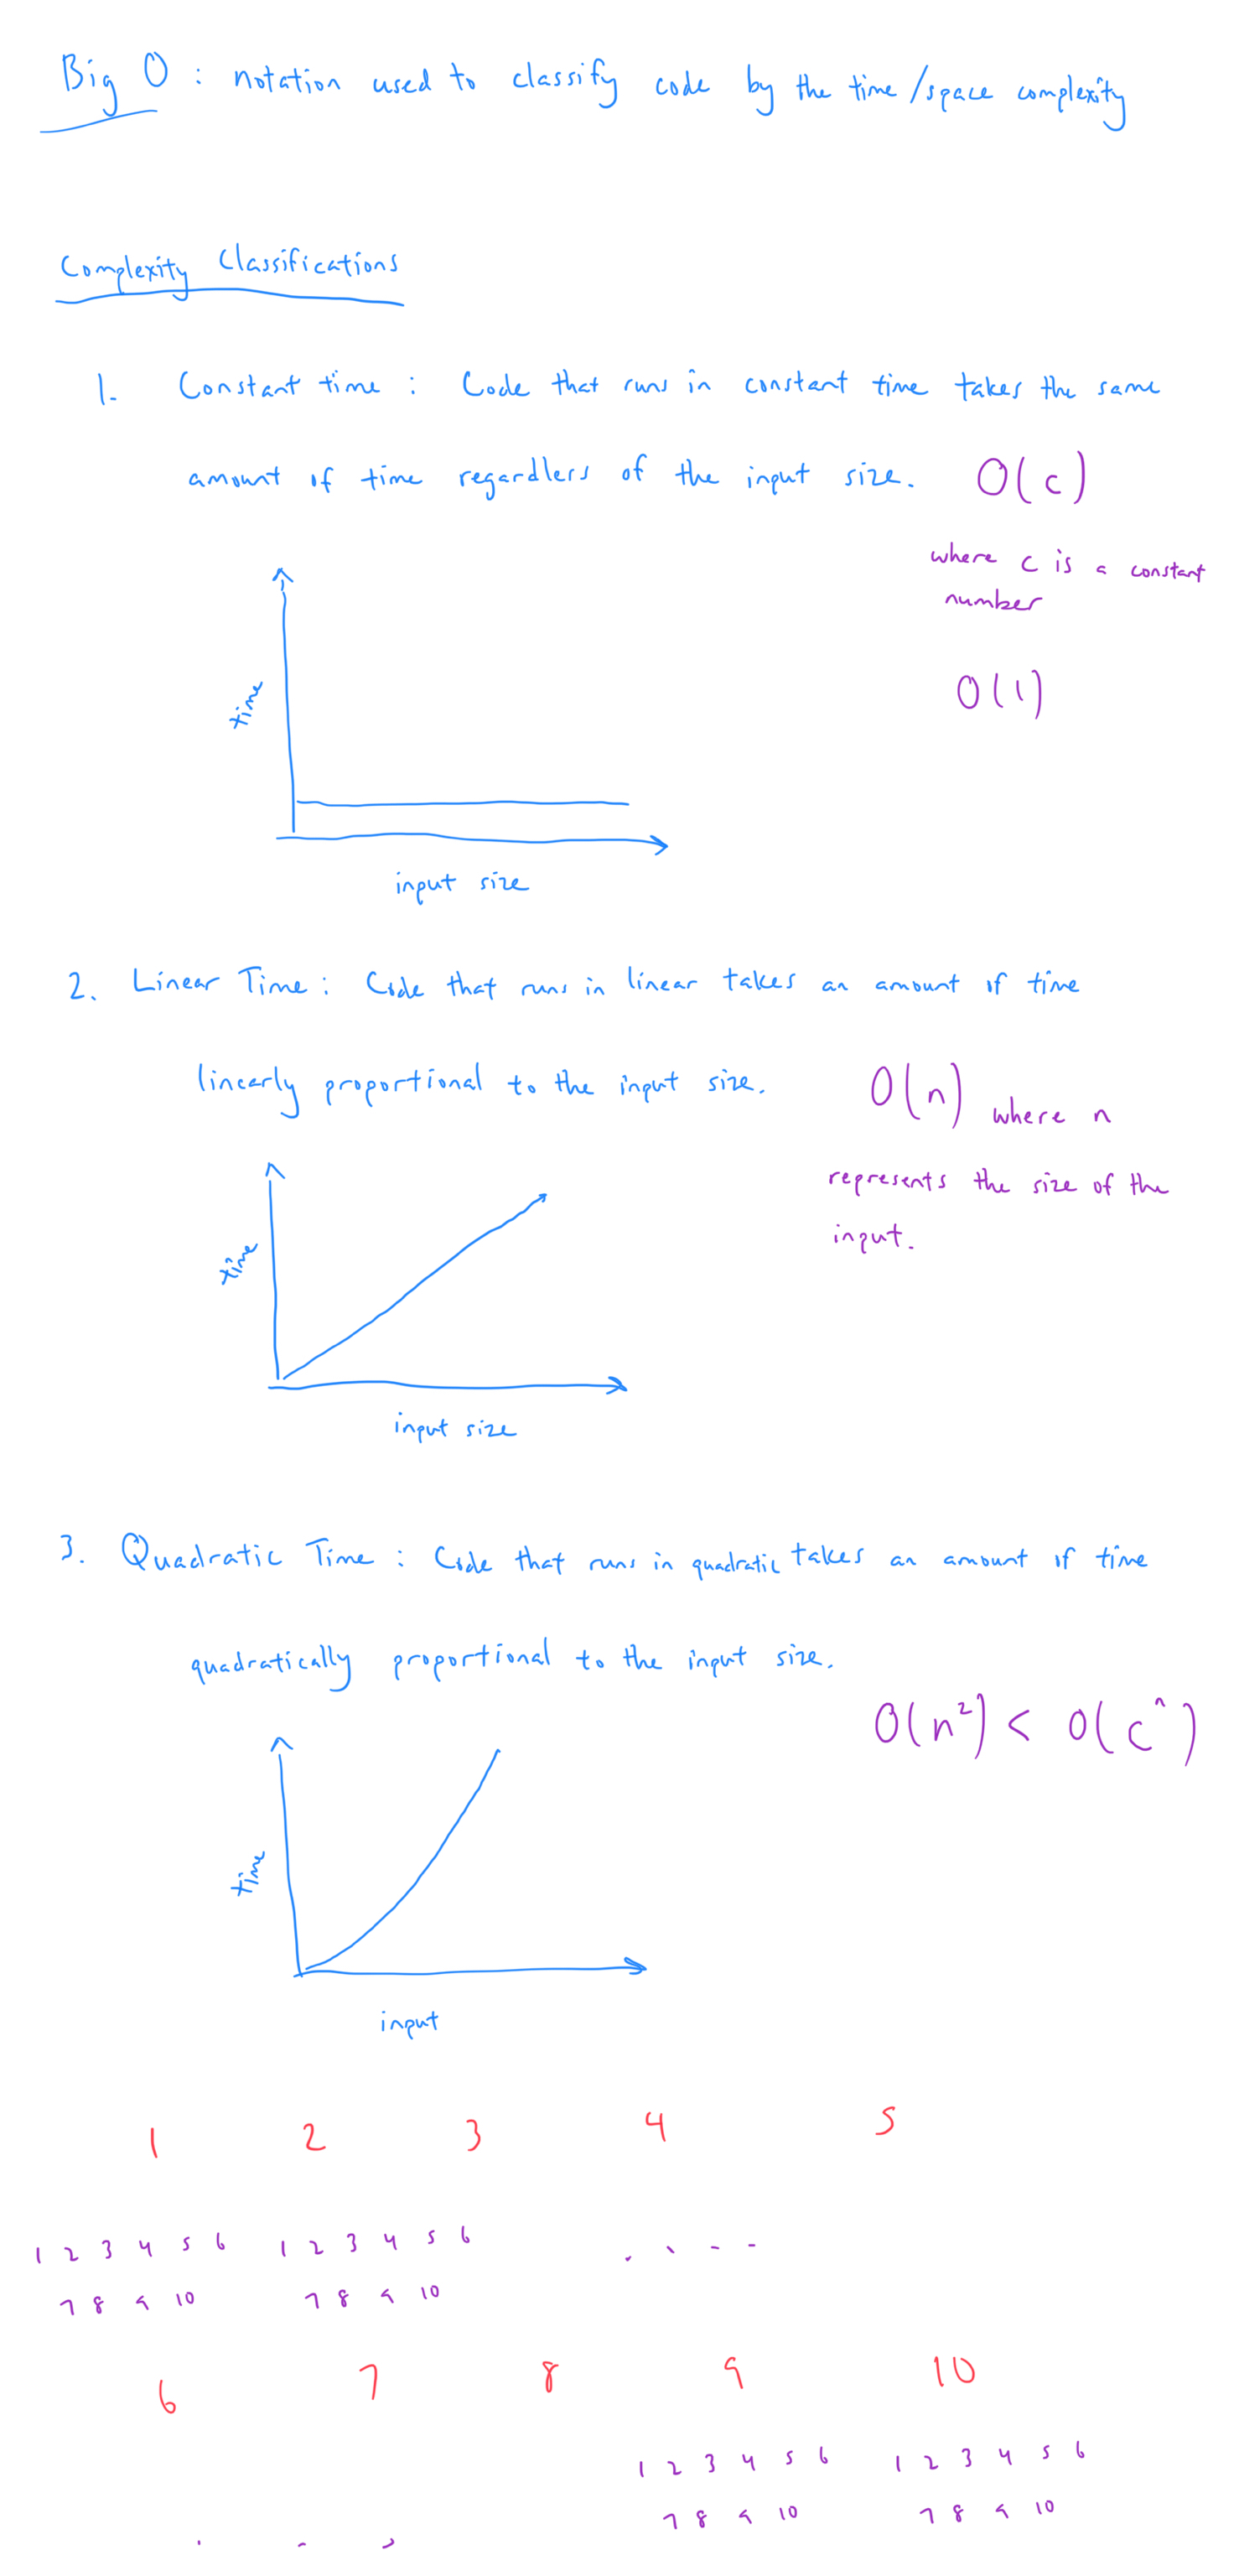 Big O : notation used to classify code by the time/space complexity
Complexity Classifications
1. Constant time : Code that runs in constant time takes the same
amount of time regardless of the input size. O(c)
where c is a constant
number
O(1)
time
input size
2. Linear Time : Code that runs in linear takes an amount of time
linearly proportional to the input size. O(n) where n
represents the size of the
input.
time
input size
3. Quadratic Time : Code that runs in quadratic takes an amount of time
quadratically proportional to the input size.
O(n²) < O(cⁿ)
time
input
1 2 3 4 5
1 2 3 4 5 6 1 2 3 4 5 6 . . . .
7 8 9 10 7 8 9 10
6 7 8 9 10
1 2 3 4 5 6 1 2 3 4 5 6
7 8 9 10 7 8 9 10
. . .